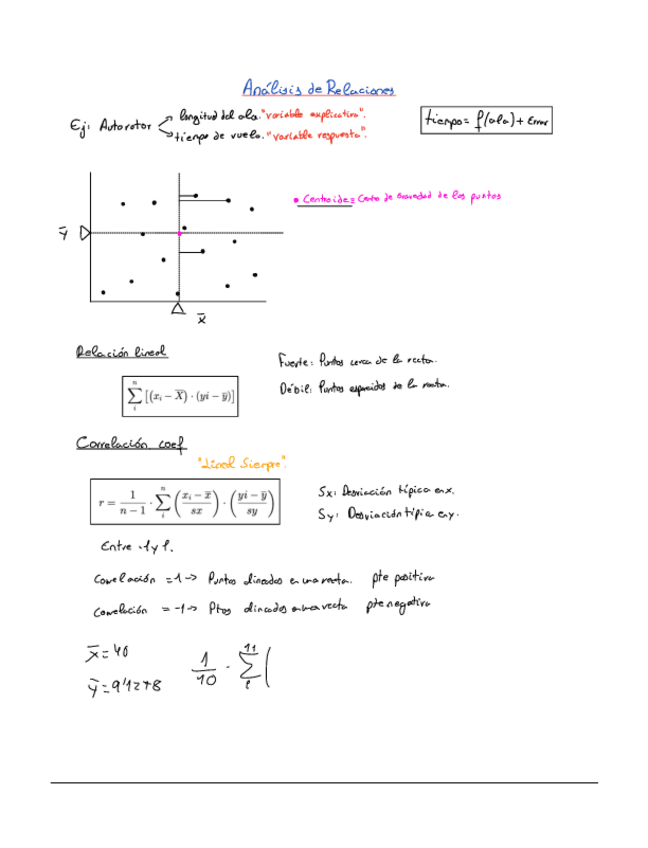 Análisis de Relaciones
Ej: Autorotor → longitud del ala. "variable explicativa".
→ tiempo de vuelo. "variable respuesta".
tiempo = f(ala) + Error
• Centroide ≡ Centro de Gravedad de los puntos
ȳ
x̄
Relación lineal
Fuerte: Puntos cerca de la recta.
∑ᵢⁿ [(xᵢ − X̄) · (yi − ȳ)]
Débil: Puntos esparcidos de la recta.
Correlación coef
"Lineal Siempre".
r = 1/(n−1) · ∑ᵢⁿ ((xᵢ − x̄)/sx) · ((yi − ȳ)/sy)
Sx: Desviación típica en x.
Sy: Desviación típica en y.
Entre -1 y 1.
Correlación = 1 -> Puntos alineados en una recta. pte positiva
Correlación = -1 -> Ptos alineados en una recta pte negativa
x̄ = 40
1/10 · ∑ 11 (